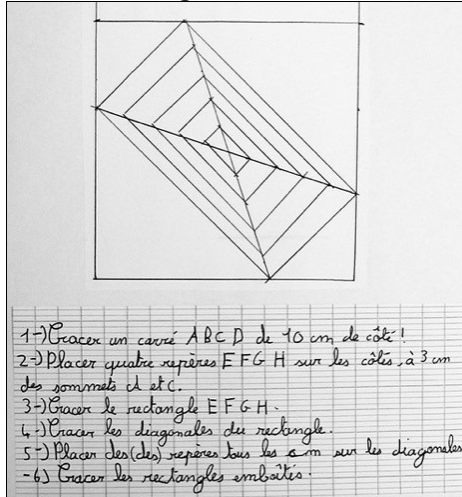 1-) Tracer un carré A B C D de 10 cm de côté !
2-) Placer quatre repères E F G H sur les côtés, à 3 cm
des sommets A et C.
3-) Tracer le rectangle E F G H.
4-) Tracer les diagonales du rectangle.
5-) Placer des (des) repères tous les cm sur les diagonales
-6) Tracer les rectangles emboîtés.